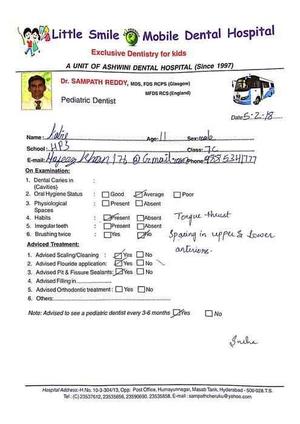 Little Smile Mobile Dental Hospital
Exclusive Dentistry for kids
A UNIT OF ASHWINI DENTAL HOSPITAL (Since 1997)
Dr. SAMPATH REDDY, MDS, FDS RCPS (Glasgow)
MFDS RCS (England)
Pediatric Dentist
Date 5-2-18
Name: Age: 11 Sex:
School: HPS Class: 7C
E-mail: Phone:
On Examination:
1. Dental Caries in :
(Cavities)
2. Oral Hygiene Status : Good Average Poor
3. Physiological : Present Absent
Spaces
4. Habits : Present Absent
5. Irregular teeth : Present Absent
6. Brushing twice : Yes No
Tongue thrust
Spacing in upper & lower
anteriors.
Adviced Treatment:
1. Advised Scaling/Cleaning : Yes No
2. Advised Flouride application: Yes No
3. Advised Pit & Fissure Sealants: Yes No
4. Advised Filling in
5. Advised Orthodontic treatment : Yes No
6. Others:
Note: Advised to see a pediatric dentist every 3-6 months Yes No
Hospital Address:-H.No. 10-3-304/13, Opp. Post Office, Humayunnagar, Masab Tank, Hyderabad - 500 028.T.S.
Tel.:(C) 23537612, 23535656, 23590690, 23535858. E-mail - sampathcheruku@yahoo.com